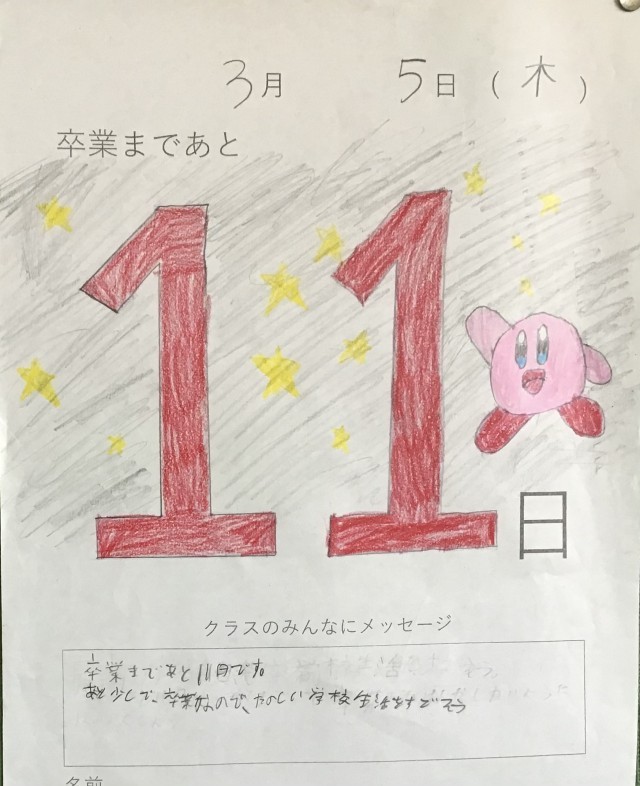 3月 5日 (木)
卒業まであと
11
日
クラスのみんなにメッセージ
卒業まであと11日です。
あと少しで、卒業なので、たのしい学校生活をすごそう
名前